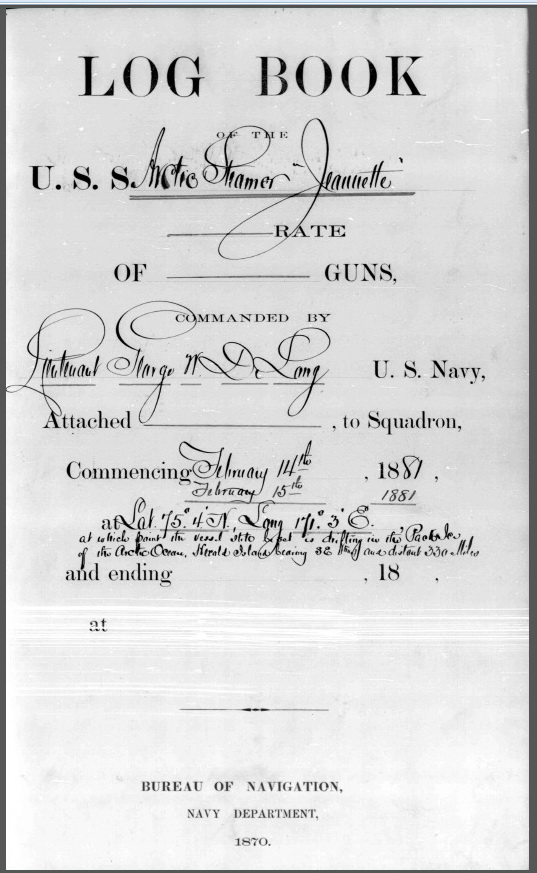 LOG BOOK
OF THE
U. S. S. Arctic Steamer "Jeannette"
RATE
OF GUNS,
COMMANDED BY
Lieutenant George W. De Long U. S. Navy,
Attached , to Squadron,
Commencing February 14th , 1881 ,
February 15th 1881
at Lat. 75° 4' N, Long 171° 3' E.
at which point the vessel is drifting in the Pack Ice
of the Arctic Ocean, Herald Island bearing and distant 330 Miles
and ending , 18 ,
at
BUREAU OF NAVIGATION,
NAVY DEPARTMENT,
1870.